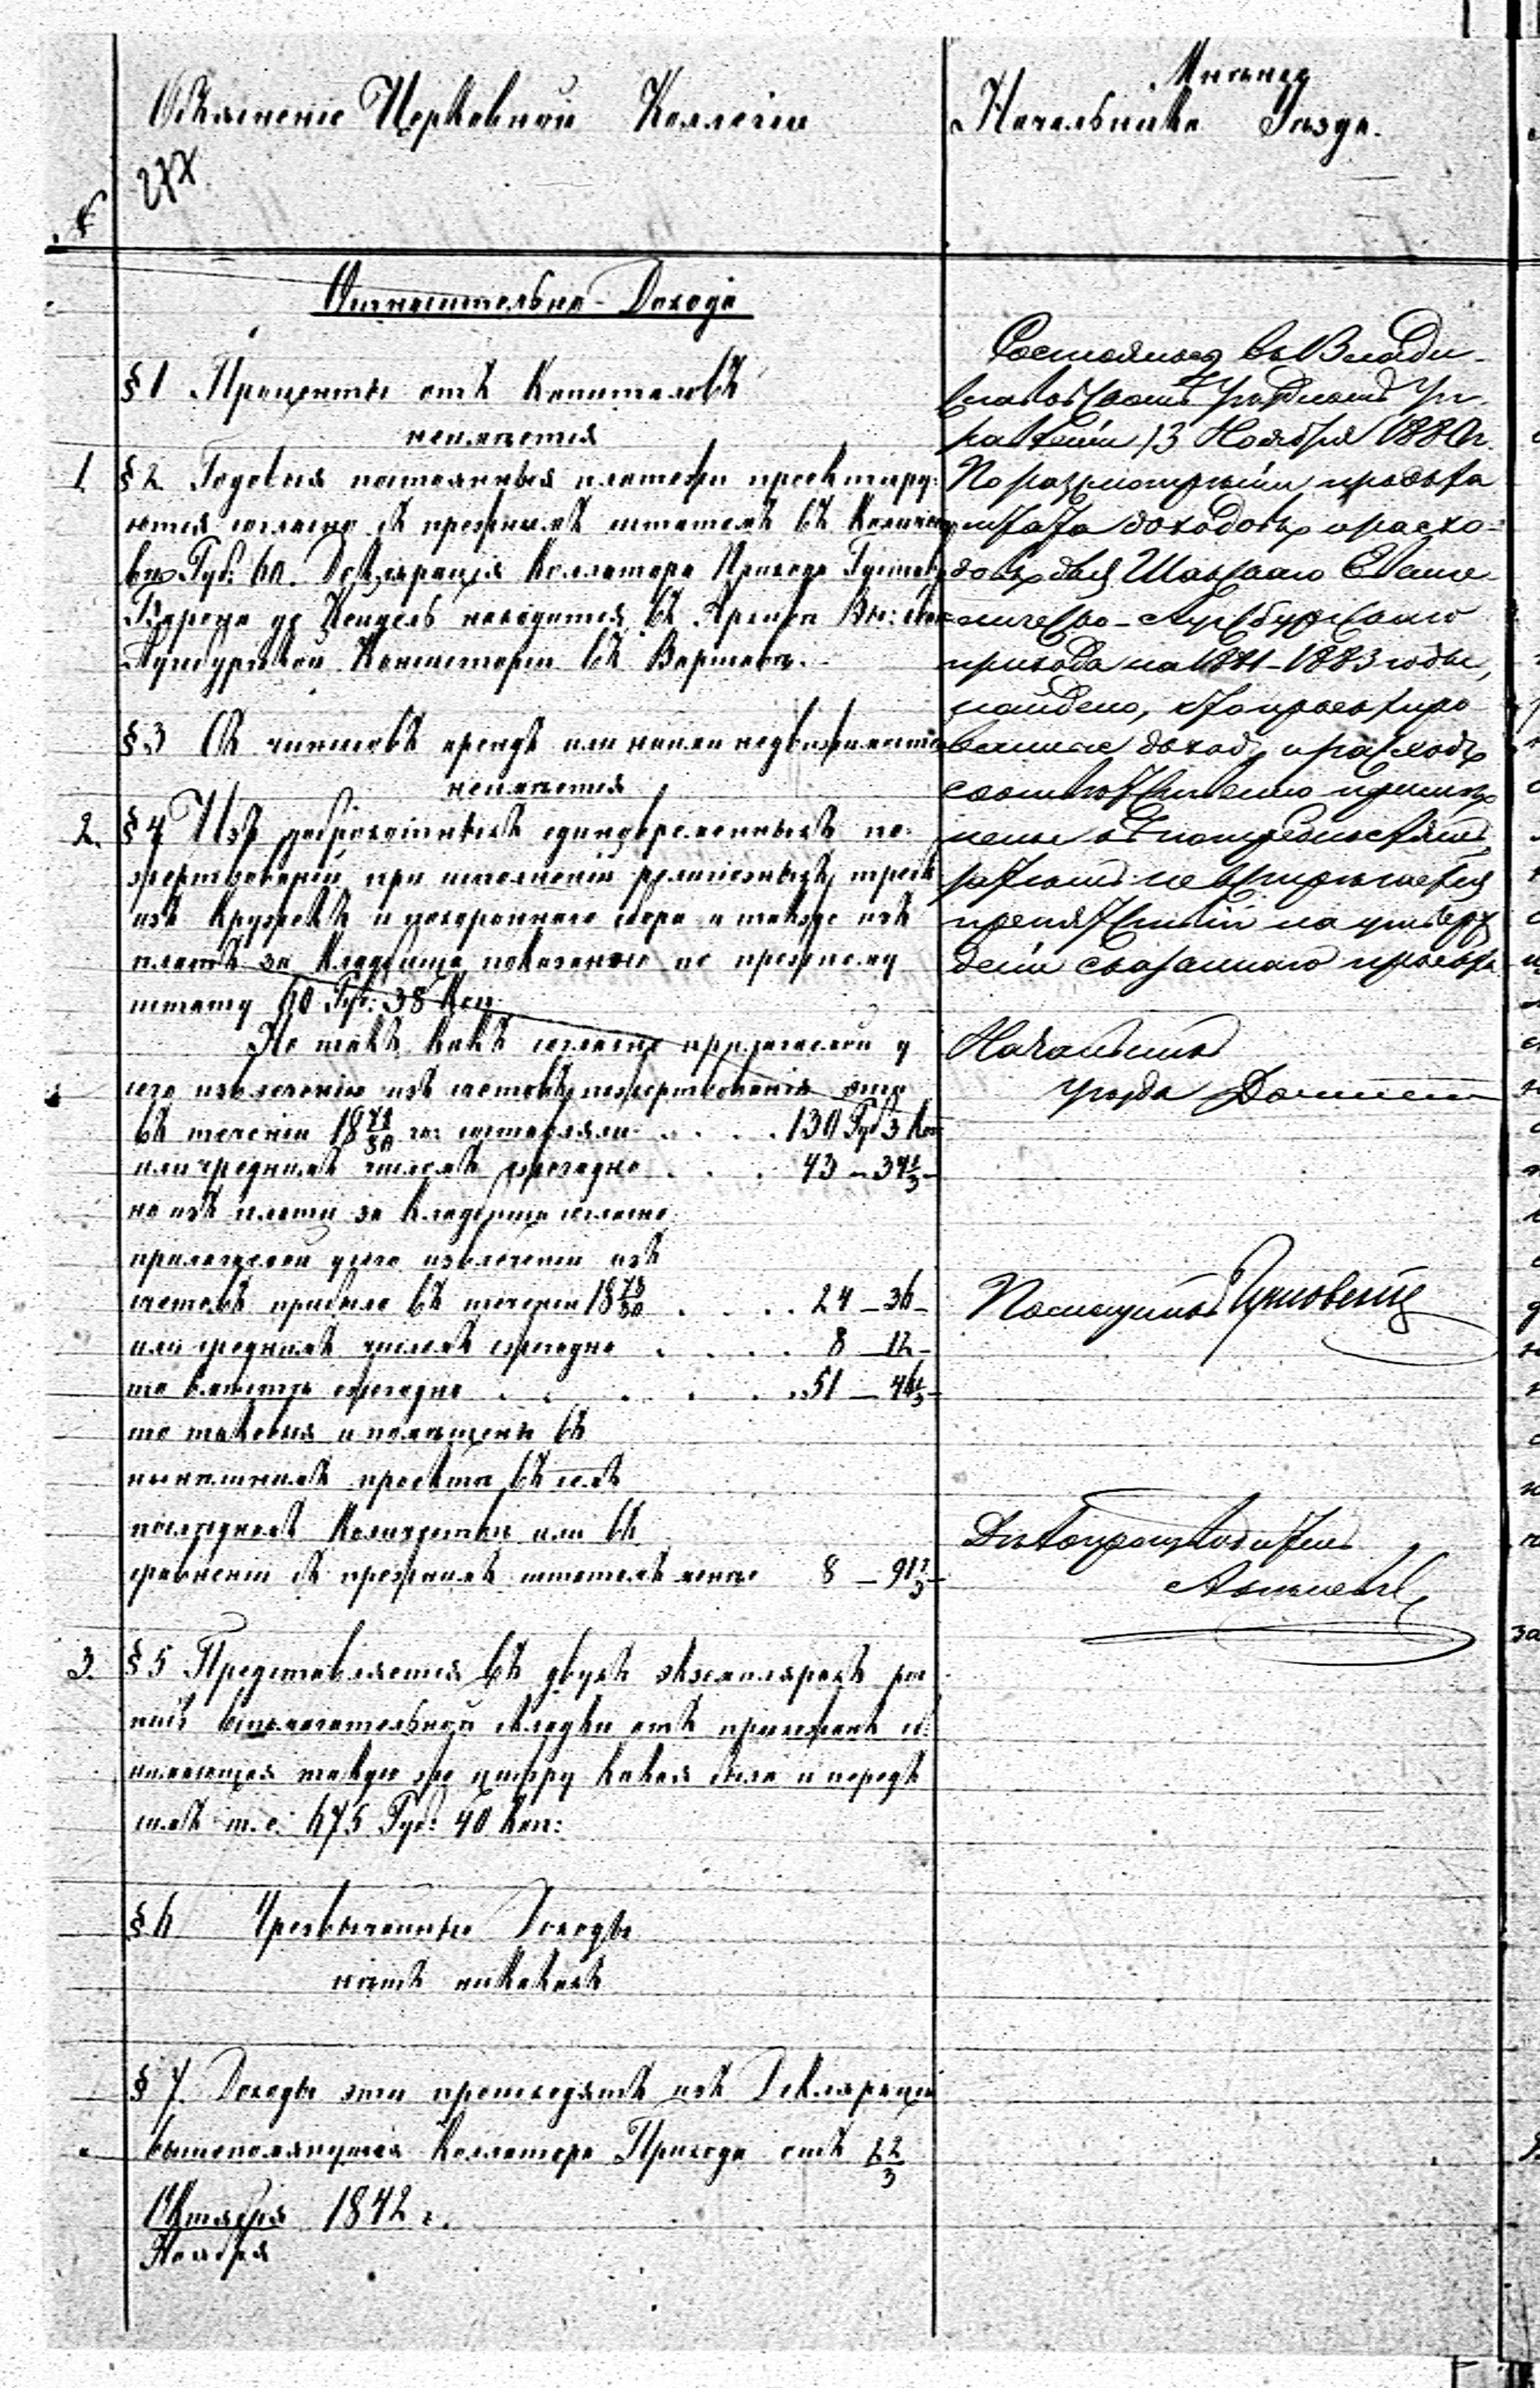 Объясненіе Церковной Коллегіи
277
№
Относительно Дохода
§ 1 Проценты отъ Капиталовъ
неимѣется
1. § 2. Годовыя постоянныя платежи проектиру-
ются согласно съ прежнимъ штатомъ въ Количест-
вѣ Руб: 60. Декларація Коллятора Прихода Густава
Барона де Кейдель находится въ Архивѣ Ев:
Аугсбургской Консисторіи въ Варшавѣ.
§ 3 Съ чиншовъ арендъ или найма недвижимости
неимѣется
2. § 4 Изъ доброхотныхъ единовременныхъ по-
жертвованій при исполненіи религіозныхъ требъ
изъ кружекъ и похороннаго сбора а также изъ
платы за Кладбища показанно по прежнему
штату 60 Руб: 38 Коп.
Но такъ какъ согласно прилагаемой у
сего извлеченію изъ счетовъ пожертвованія эти
въ теченіи 18 78/80 гг. составляли . . . . 130 Руб 3 Коп
или среднимъ числомъ ежегодно . . . 43 – 34 1/3 –
но изъ платы за кладбища согласно
прилагаемой у сего извлеченіи изъ
счетовъ прибыло въ теченіи 18 78/80 . . . . 24 – 36 –
или среднимъ числомъ ежегодно . . . . 8 – 12 –
то вмѣстѣ ежегодно . . . . . 51 – 46 1/3 –
то таковыя и помѣщены въ
нынѣшнемъ проектѣ въ семъ
послѣднемъ Количествѣ или въ
сравненіи съ прежнимъ штатомъ менѣе 8 – 91 2/3 –
3. § 5 Представляется въ двухъ экземплярахъ рос-
пись вспомогательной складки отъ прихожанъ
имѣющая такую же цифру какая была и передъ
симъ т. е. 675 Руб: 40 Коп:
§ 6 Чрезвычайные Доходы
нѣтъ никакихъ
§ 7. Доходы эти происходятъ изъ Деклараціи
вышепомянутаго Коллятора Прихода отъ 22/3
Октября 1842 г.
Ноября
Мнѣніе
Начальника Уѣзда.
Состоялось въ Влади-
славовскомъ Уѣздномъ Уп-
равленіи 13 Ноября 1880 г.
По разсмотрѣніи проэкта
штата доходовъ и расхо-
довъ для Шакскаго Еванге-
лическо-Аугсбургскаго
прихода на 1881–1883 годы,
найдено, что проектиро-
ванные доходъ и расходъ
соотвѣтственно примѣ-
нены къ потребностямъ,
поэтому не встрѣчается
препятствій на утверж-
деніи сказаннаго проэкта
Начальникъ
Уѣзда
Помощникъ
Дѣлопроизводитель